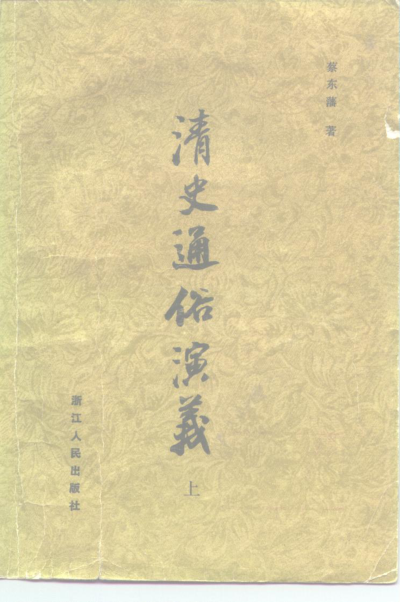 蔡东藩 著
清史通俗演義
上
浙江人民出版社